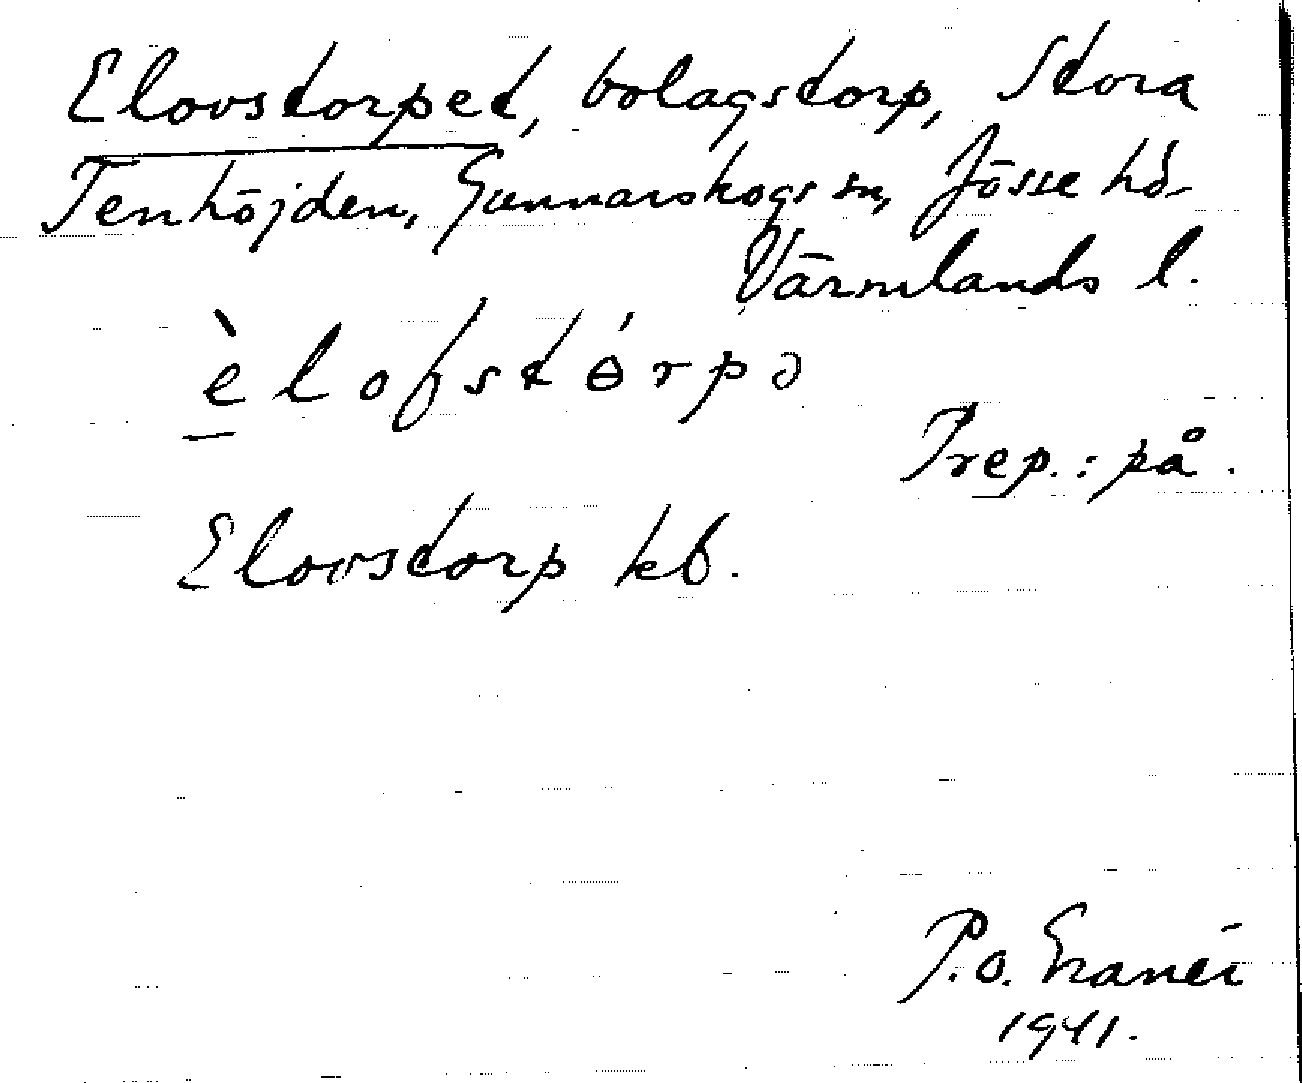 Elovstorpet, bolagstorp, Stora
Tenhöjden, Gunnarskogs sn, Jösse hd
Värmlands l.
è l o f s t ɵ́ r p ə
Prep. : på .
Elovstorp kb.
P. O.
1941.